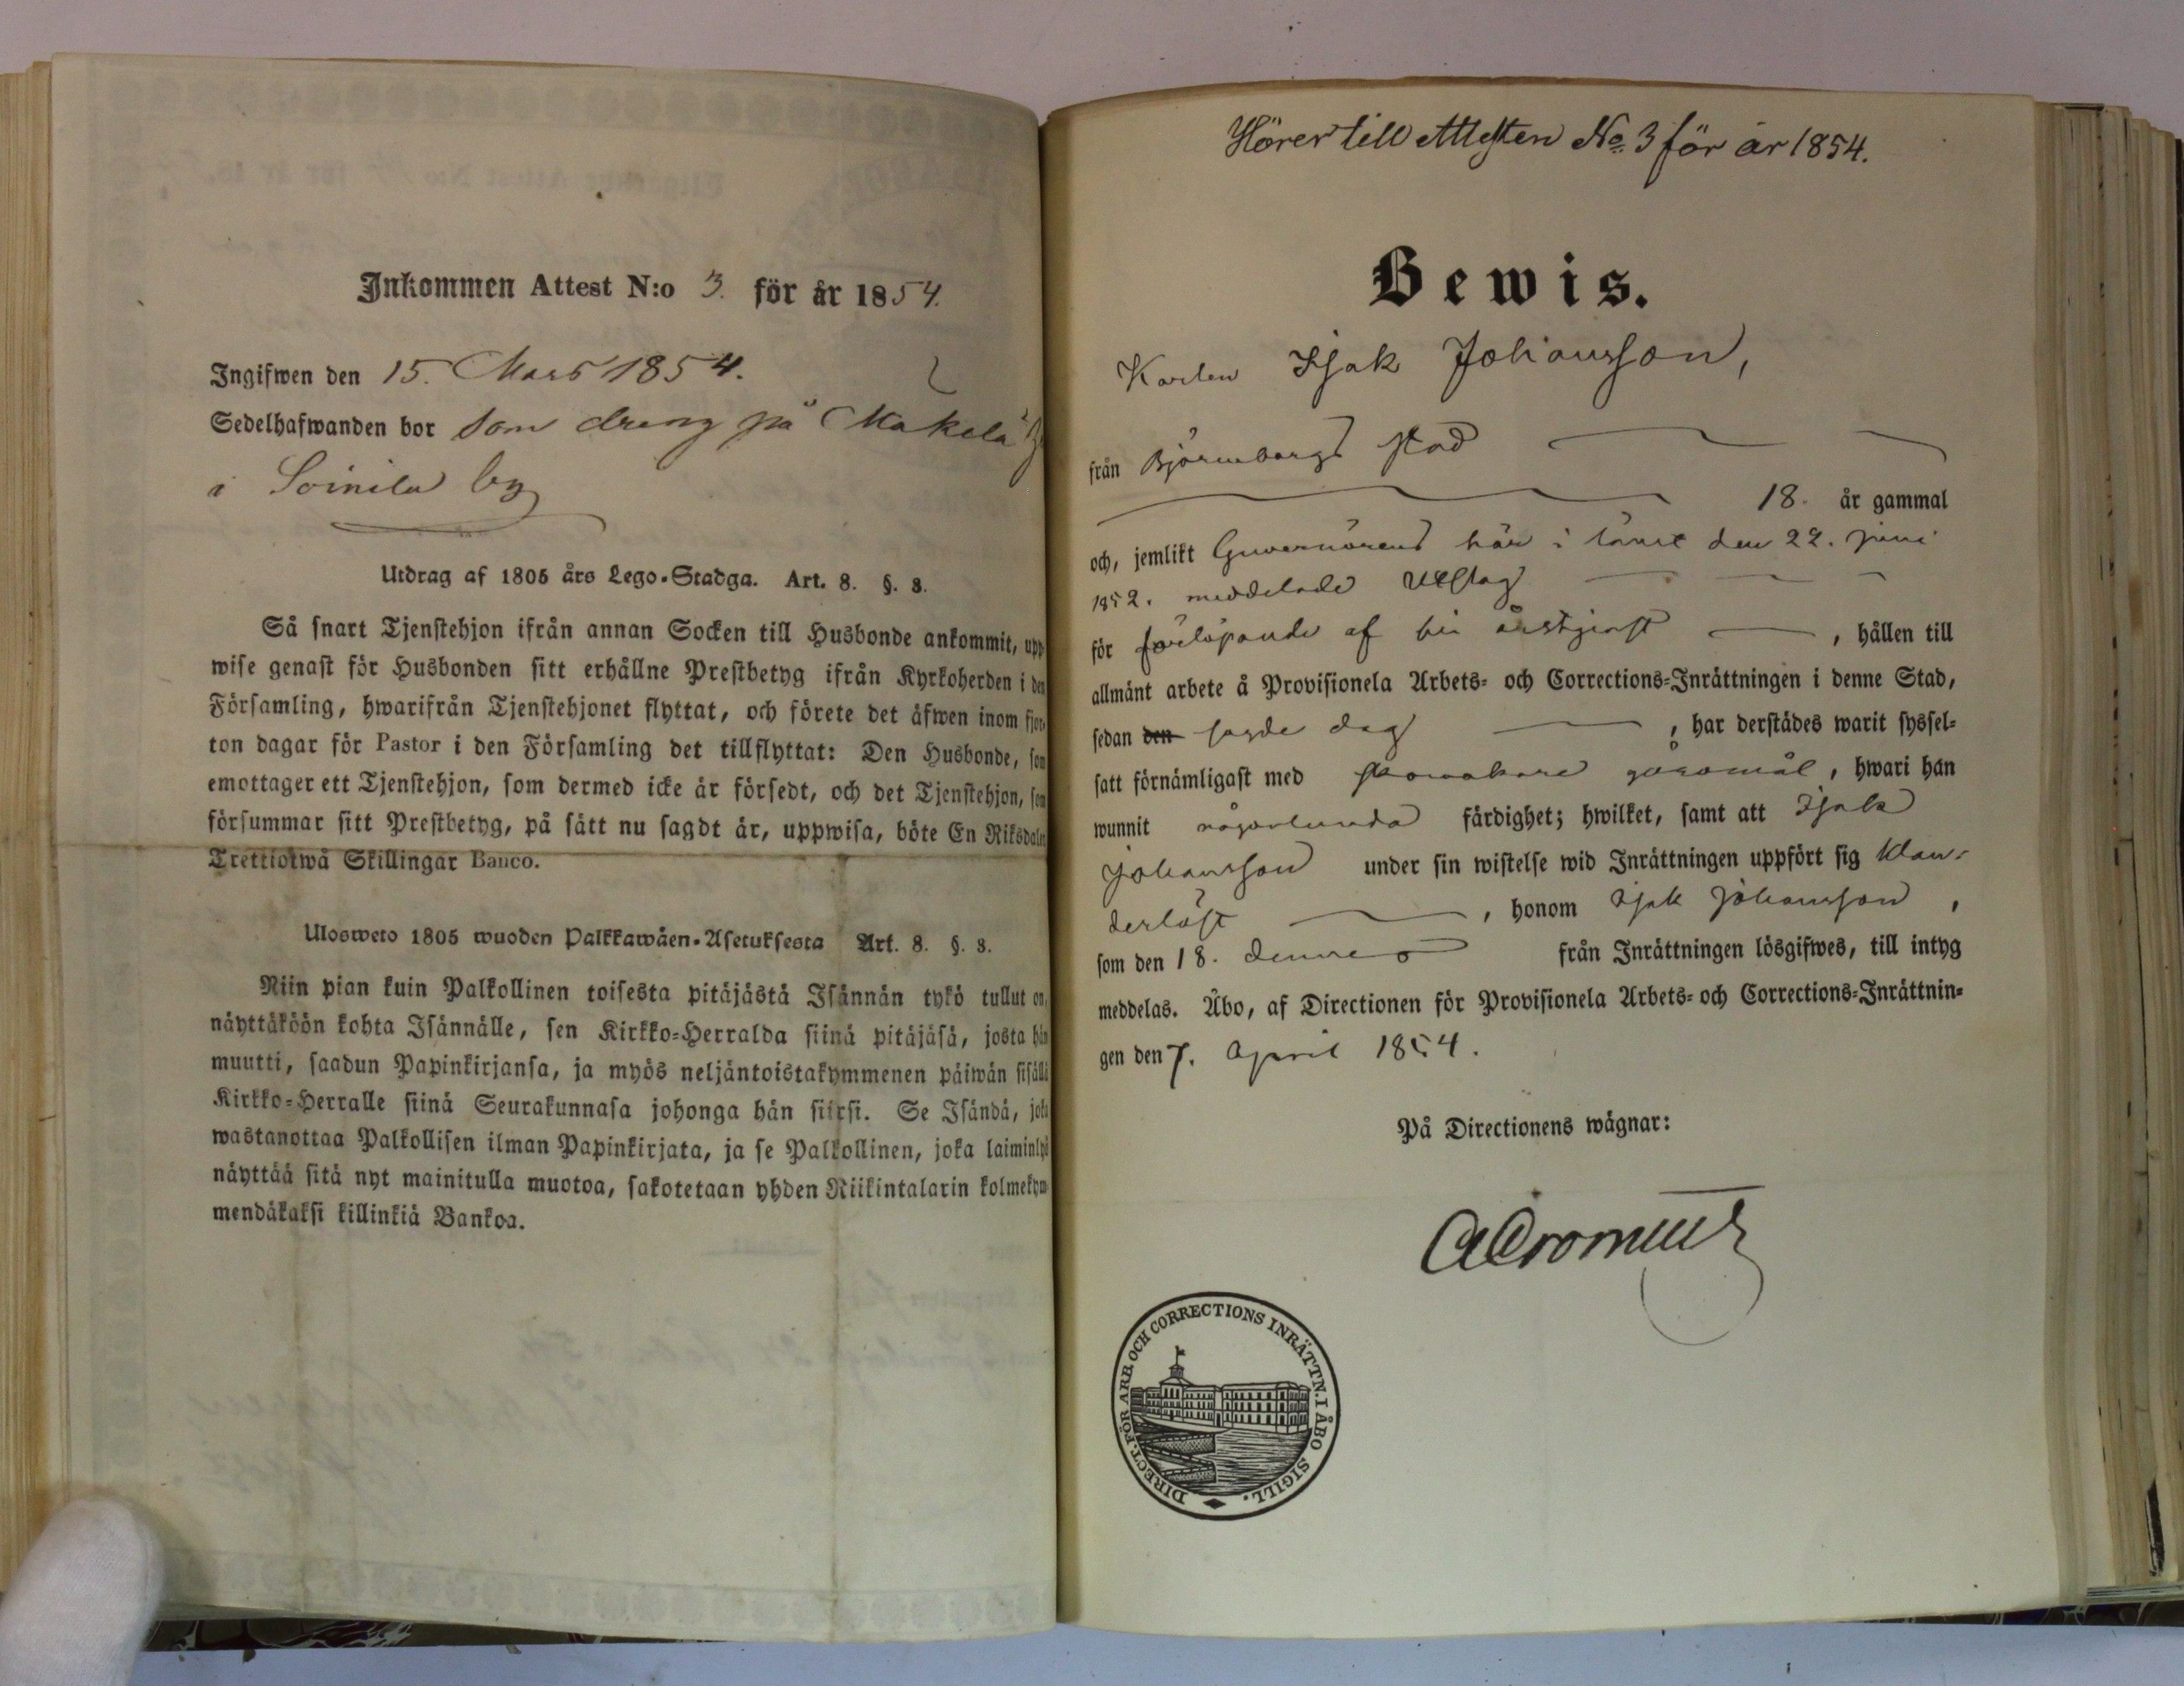 Inkommen Attest N:o 3. för år 1854.
Ingifwen den 15. Mars 1854.
Sedelhafwanden bor som dreng på Mäkelä
i Soinila by
Utdrag af 1805 års Lego-Stadga. Art. 8. §. 8.
Så snart Tjenstehjon ifrån annan Socken till Husbonde ankommit, upp-
wise genast för Husbonden sitt erhållne Prestbetyg ifrån Kyrkoherden i den
Församling, hwarifrån Tjenstehjonet flyttat, och förete det äfwen inom fjor-
ton dagar för Pastor i den Församling det tillflyttat: Den Husbonde, som
emottager ett Tjenstehjon, som dermed icke är försedt, och det Tjenstehjon, som
försummar sitt Prestbetyg, på sätt nu sagdt är, uppwisa, böte En Riksdaler
Trettiotwå Skillingar Banco.
Ulosweto 1805 wuoden Palkkawäen-Asetuksesta Art. 8. §. 8.
Niin pian kuin Palkollinen toisesta pitäjästä Isännän tykö tullut on,
näyttäköön kohta Isännälle, sen Kirkko-Herralda siinä pitäjäsä, josta hän
muutti, saadun Papinkirjansa, ja myös neljäntoistakymmenen päiwän sisällä
Kirkko-Herralle siinä Seurakunnasa johonga hän siirsi. Se Isändä, joka
wastanottaa Palkollisen ilman Papinkirjata, ja se Palkollinen, joka laiminlyö
näyttää sitä nyt mainitulla muotoa, sakotetaan yhden Riikintalarin kolmekym-
mendäkaksi killinkiä Bankoa.
Hörer till Attesten No 3 för år 1854.
Bewis.
Karlen Isak Johansson,
från Björneborgs stad
18. år gammal
och, jemlikt Guvernörens här i länet den 22. juni
1852. meddelade Utslag
för förlöpande af sin årstjenst, hållen till
allmänt arbete å Provisionela Arbets- och Corrections-Inrättningen i denne Stad,
sedan den sagde dag, har derstädes warit syssel-
satt förnämligast med skomakare göromål, hwari han
wunnit någorlunda färdighet; hwilket, samt att Isak
Johansson under sin wistelse wid Inrättningen uppfört sig klan-
derlöst, honom Isak Johansson,
som den 18. dennes från Inrättningen lösgifwes, till intyg
meddelas. Åbo, af Directionen för Provisionela Arbets- och Corrections-Inrättnin-
gen den 7. April 1854.
På Directionens wägnar:
DIRECT. FÖR ARB. OCH CORRECTIONS INRÄTTN. I ÅBO SIGILL.